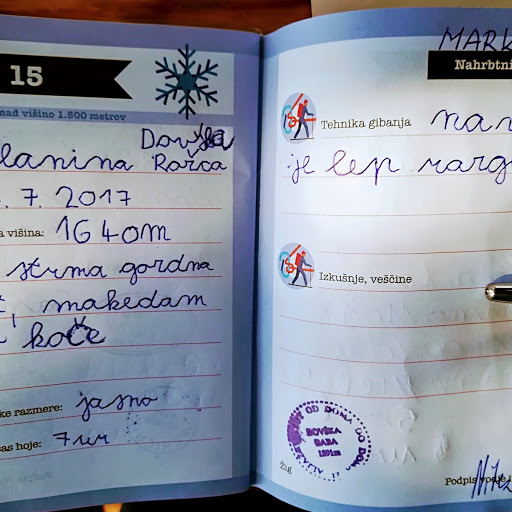 15
nad višino 1.500 metrov
Dovška
lanina Rožca
. 7. 2017
a višina: 1640m
strma gozdna
, makedam
koče
ke razmere: jasno
as hoje: 7 ur
MARK
Nahrbtni
Tehnika gibanja nam
je lep razg
Izkušnje, veščine
OD DOMA DO DOM
BOVŠKA
BABA
1891m
Žig
Podpis vodje i